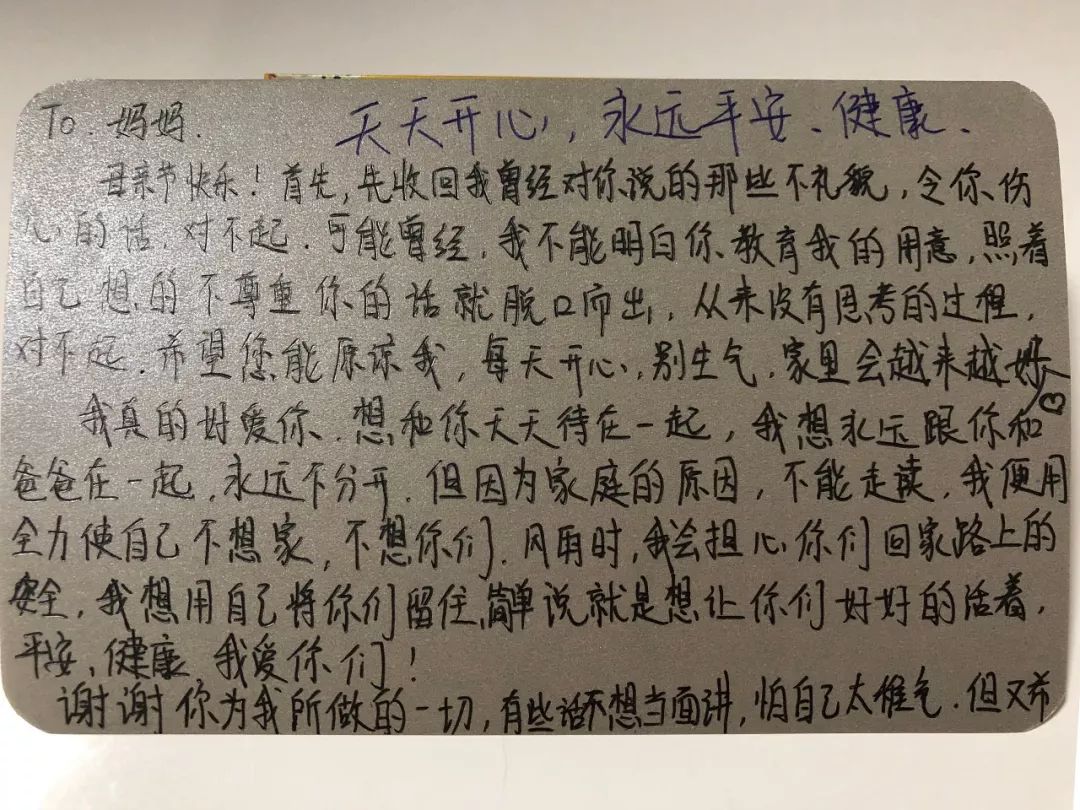 To. 妈妈.
天天开心, 永远平安、健康.
母亲节快乐! 首先, 先收回我曾经对你说的那些不礼貌, 令你伤
心的话, 对不起. 可能曾经, 我不能明白你教育我的用意, 照着
自己想的不尊重你的话就脱口而出, 从来没有思考的过程,
对不起. 希望您能原谅我, 每天开心, 别生气, 家里会越来越好
我真的好爱你. 想和你天天待在一起, 我想永远跟你和
爸爸在一起, 永远不分开. 但因为家庭的原因, 不能走读, 我便用
全力使自己不想家, 不想你们. 风雨时, 我会担心你们回家路上的
安全, 我想用自己将你们留住, 简单说就是想让你们好好的活着,
平安, 健康 我爱你们!
谢谢你为我所做的一切, 有些话不想当面讲, 怕自己太稚气. 但又希